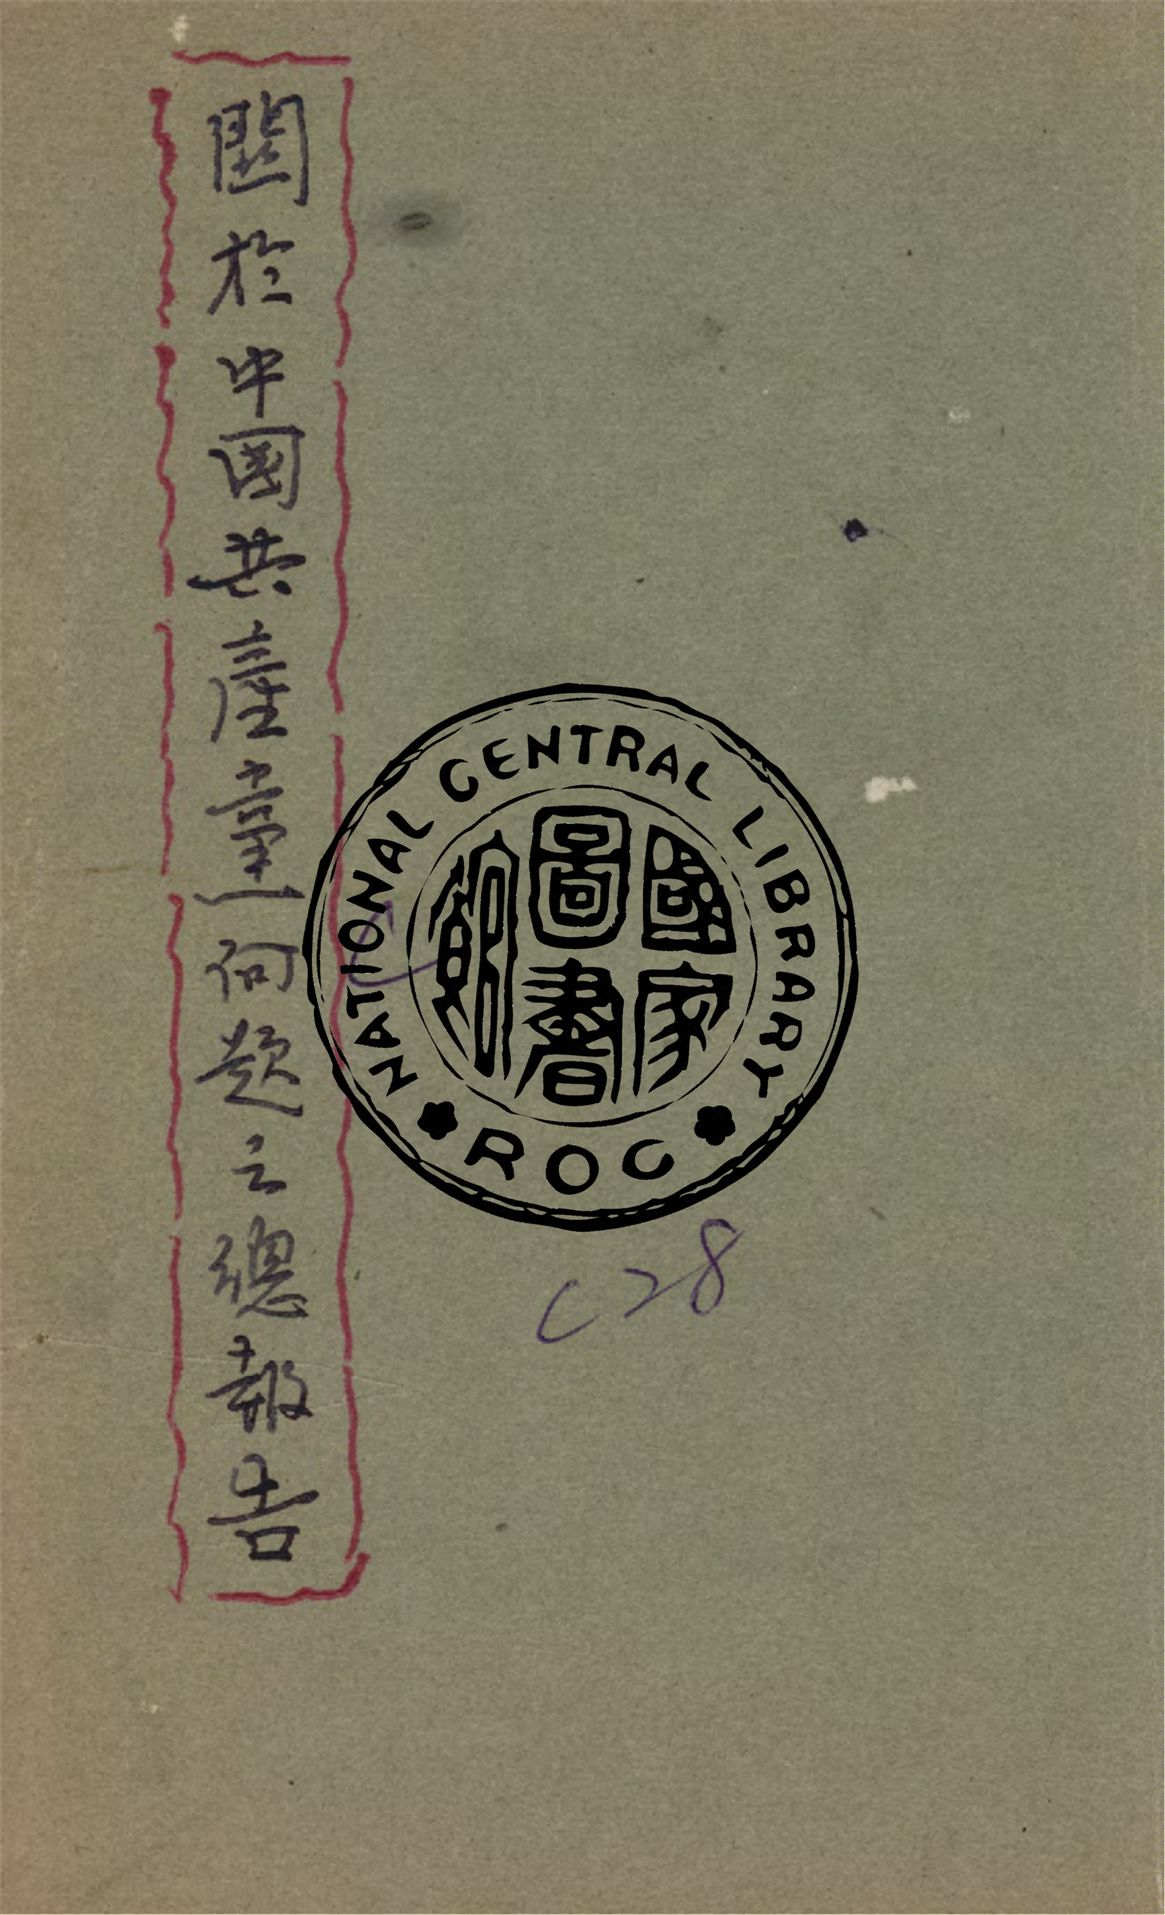 關於中國共產黨问題之總報告
NATIONAL CENTRAL LIBRARY
國家圖書館
ROC
C28